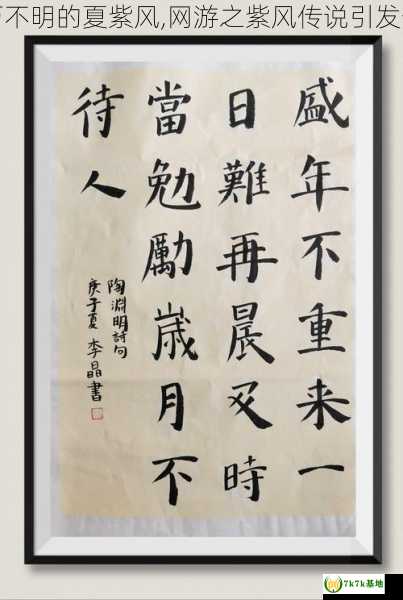 不明的夏紫风,网游之紫风传说引发
盛年不重来一
日難再晨及時
當勉勵嵗月不
待人
陶淵明詩句
庚子夏 李晶書
7k7k基地